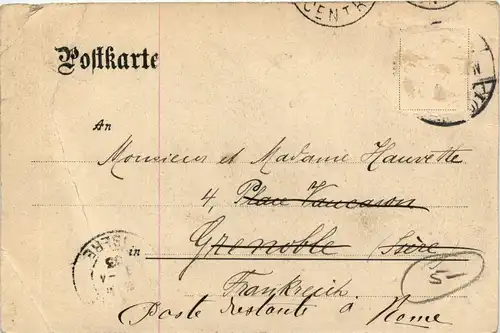 CENTR
Postkarte
An
Monsieur et Madame Hauvette
4, Place Vaucanson
in Grenoble Isère
ISERE
Frankreich
Poste restante à Rome
5